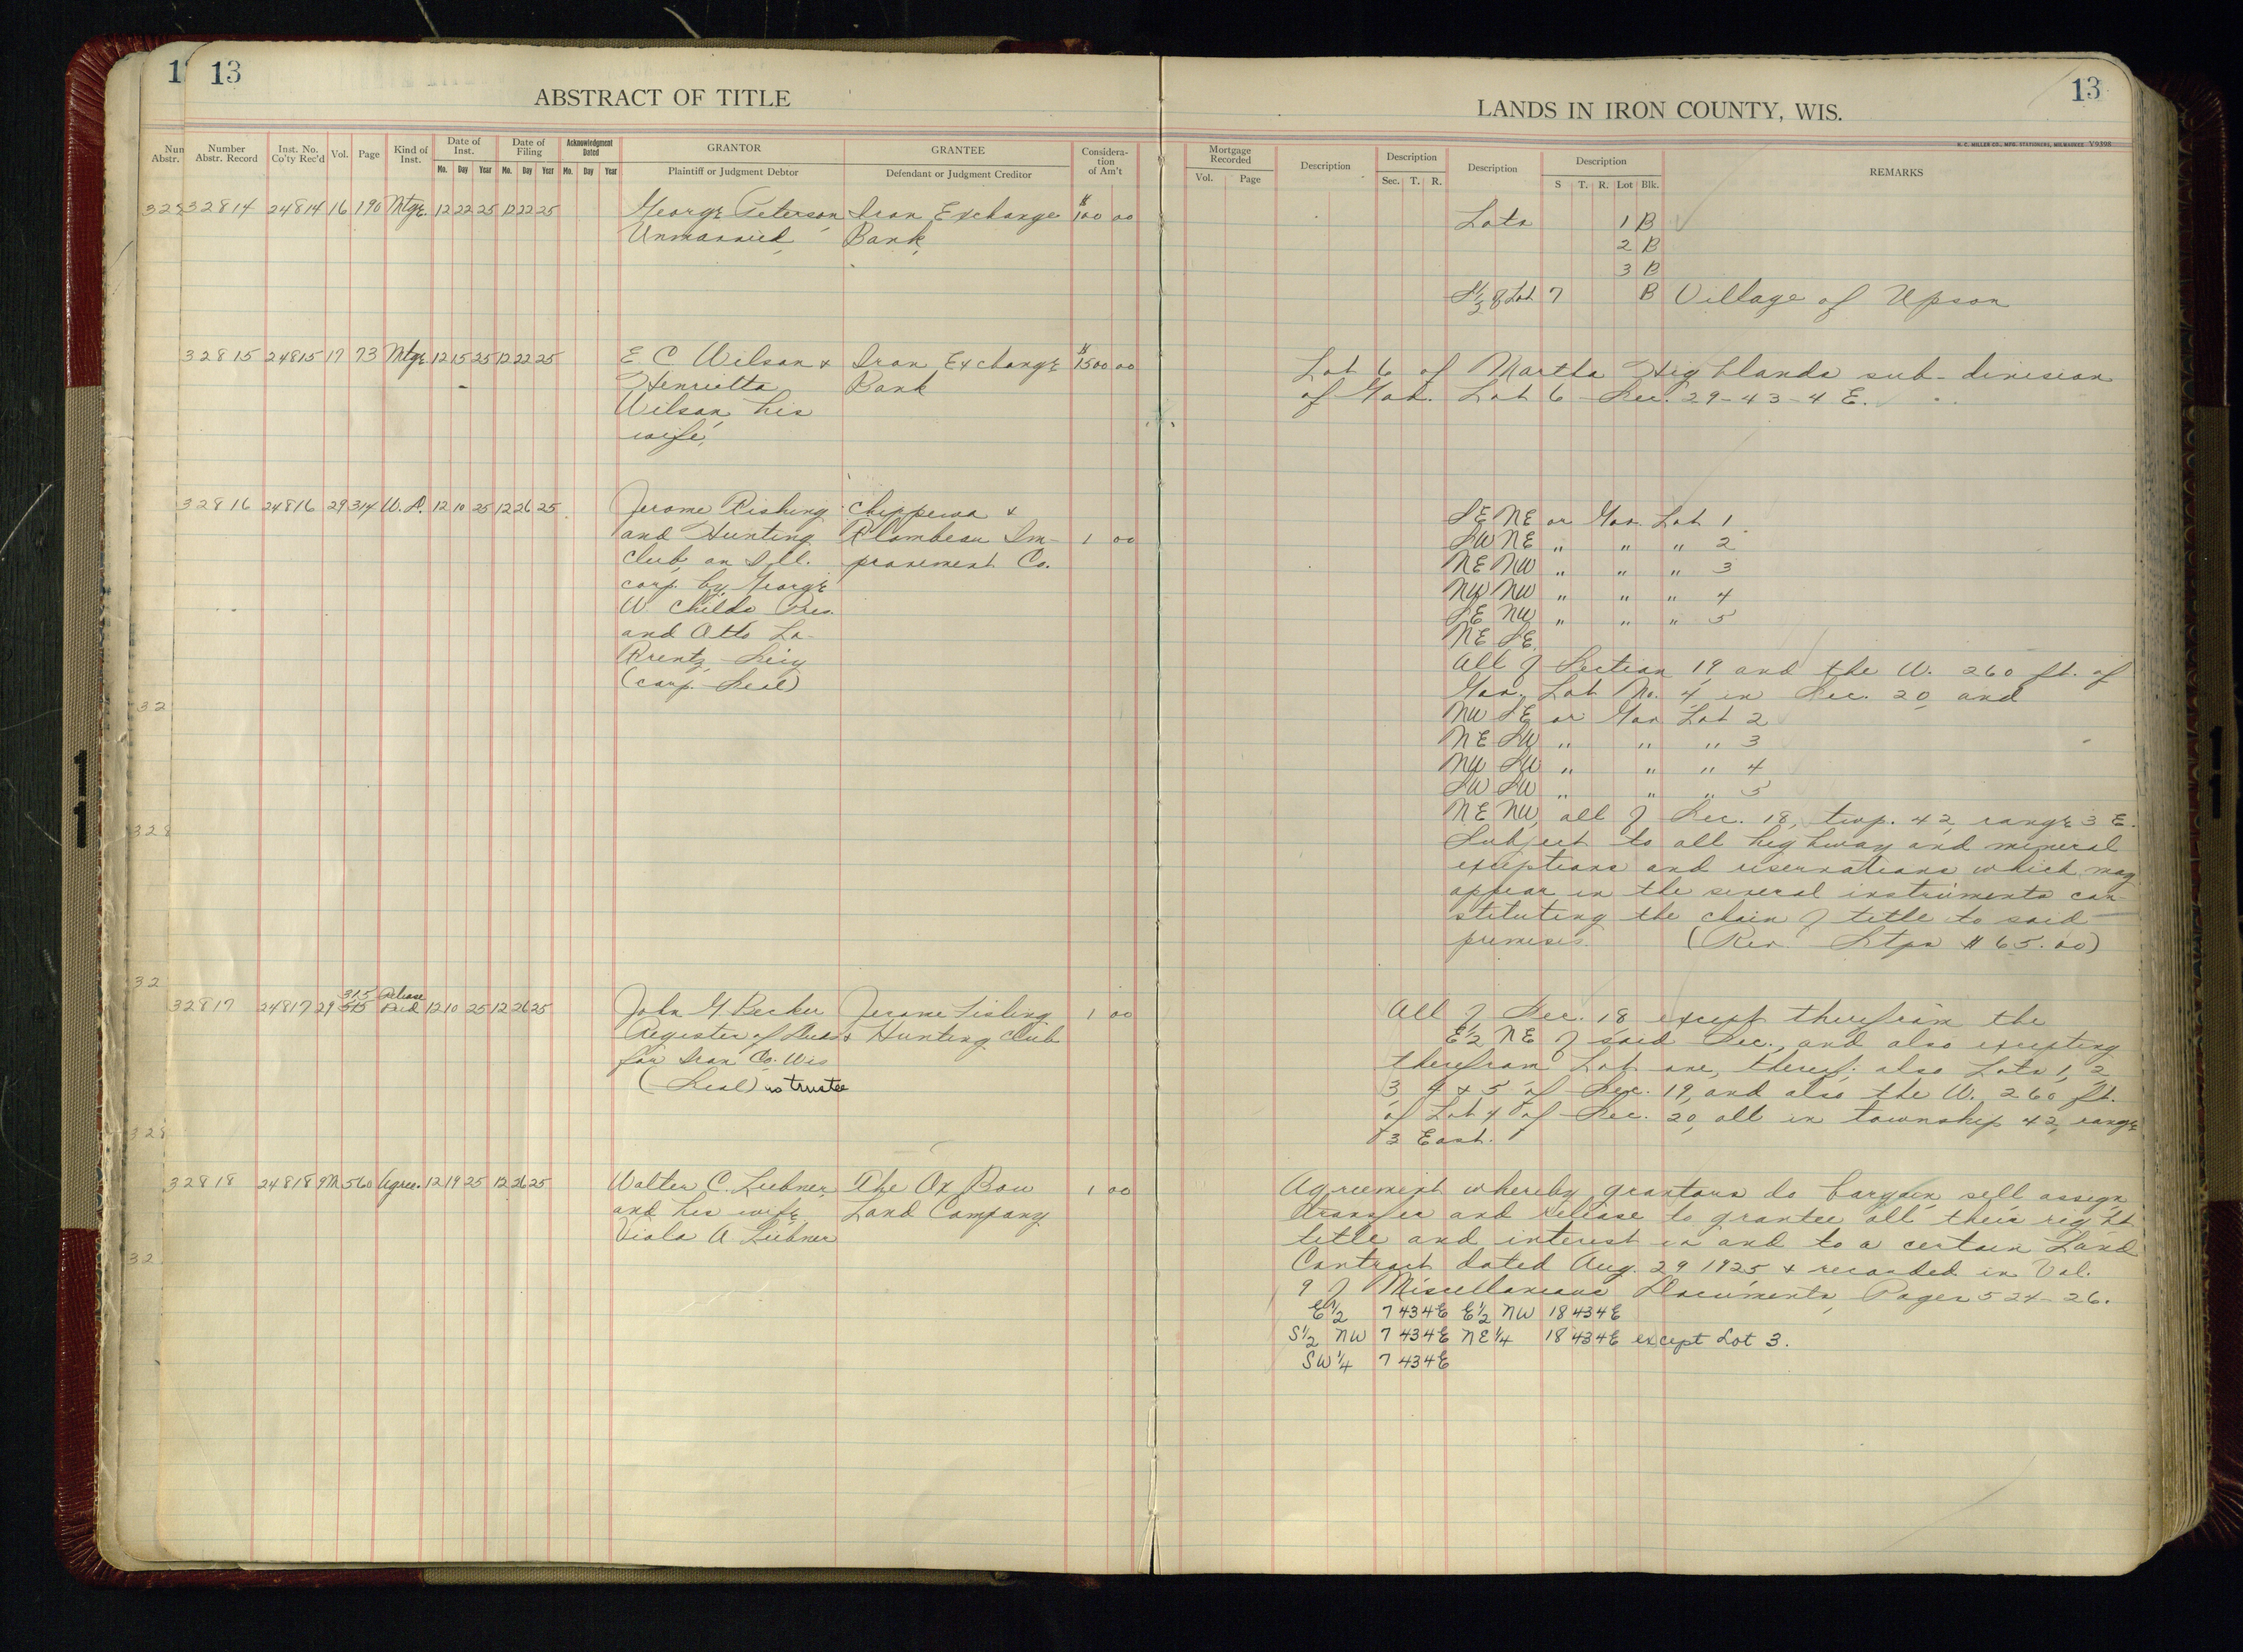 13
13
ABSTRACT OF TITLE
LANDS IN IRON COUNTY, WIS.
H. C. MILLER CO., MFG. STATIONERS, MILWAUKEE V9398
Number Abstr. Record
Inst. No. Co'ty Rec'd
Vol.
Page
Kind of Inst.
Date of Inst.
Mo. Day Year
Date of Filing
Mo. Day Year
Acknowledgment Dated
Mo. Day Year
GRANTOR
Plaintiff or Judgment Debtor
GRANTEE
Defendant or Judgment Creditor
Considera-tion of Am't
Mortgage Recorded
Vol. Page
Description
Description
Sec. T. R.
Description
Description
S T. R. Lot Blk.
REMARKS
32814 24814 16 190 Mtge. 12 22 25 12 22 25 George Peterson Iron Exchange $100 00
Unmarried, Bank,
Lots 1 B
2 B
3 B
S 1/2 of Lot 7 B Village of Upson
32815 24815 17 73 Mtge 12 15 25 12 22 25 E C Wilson & Iron Exchange $1500 00
Henrietta Bank
Wilson, his
wife,
Lot 6 of Martha Highlands sub-division
of Gov. Lot 6 Sec. 29-43-4 E.
32816 24816 29 314 W.D. 12 10 25 12 26 25 Jerome Fishing Chippewa &
and Hunting Flambeau Im- 1 00
Club, an Ill. provement Co.
corp. by George
W. Childs Pres.
and Otto La-
Krentz, Secy
(corp. Seal)
SE NE or Gov. Lot 1
SW NE " " " 2
NE NW " " " 3
NW NW " " " 4
SE NW " " " 5
NE SE
All of Section 19, and the W. 260 ft. of
Gov. Lot No. 4 in Sec. 20, and
NW SE or Gov Lot 2
NE SW " " " 3
NW SW " " " 4
SW SW " " " 5
NE NW, all of Sec. 18, twp. 42, range 3 E.
Subject to all highway and mineral
exceptions and reservations which may
appear in the several instruments con-
stituting the chain of title to said
premises. (Rev. Stps $65.00)
32817 24817 29 315 Release Deed 12 10 25 12 26 25 John G. Becker Jerome Fishing 1 00
Register of Deeds & Hunting Club
for Iron Co. Wis
(Seal) as trustee
All of Sec. 18 except therefrom the
E 1/2 NE of said Sec., and also excepting
therefrom Lot one, thereof; also Lots 1, 2,
3, 4 & 5 of Sec. 19, and also the W. 260 ft.
of Lot 4 of Sec. 20, all in township 42, range
3 East.
32818 24818 9M 560 Agree. 12 19 25 12 26 25 Walter C. Liebner, The Ox Bow 1 00
and his wife Land Company
Viola A Liebner
Agreement whereby grantors do bargain, sell, assign,
transfer and release to grantee all their right
title and interest in and to a certain Land
Contract dated Aug. 29 1925 & recorded in Vol.
9 of Miscellaneous Documents, Pages 524-26.
E 1/2 7 43 4E E 1/2 NW 18 43 4E
S 1/2 NW 7 43 4E NE 1/4 18 43 4E except Lot 3.
SW 1/4 7 43 4E